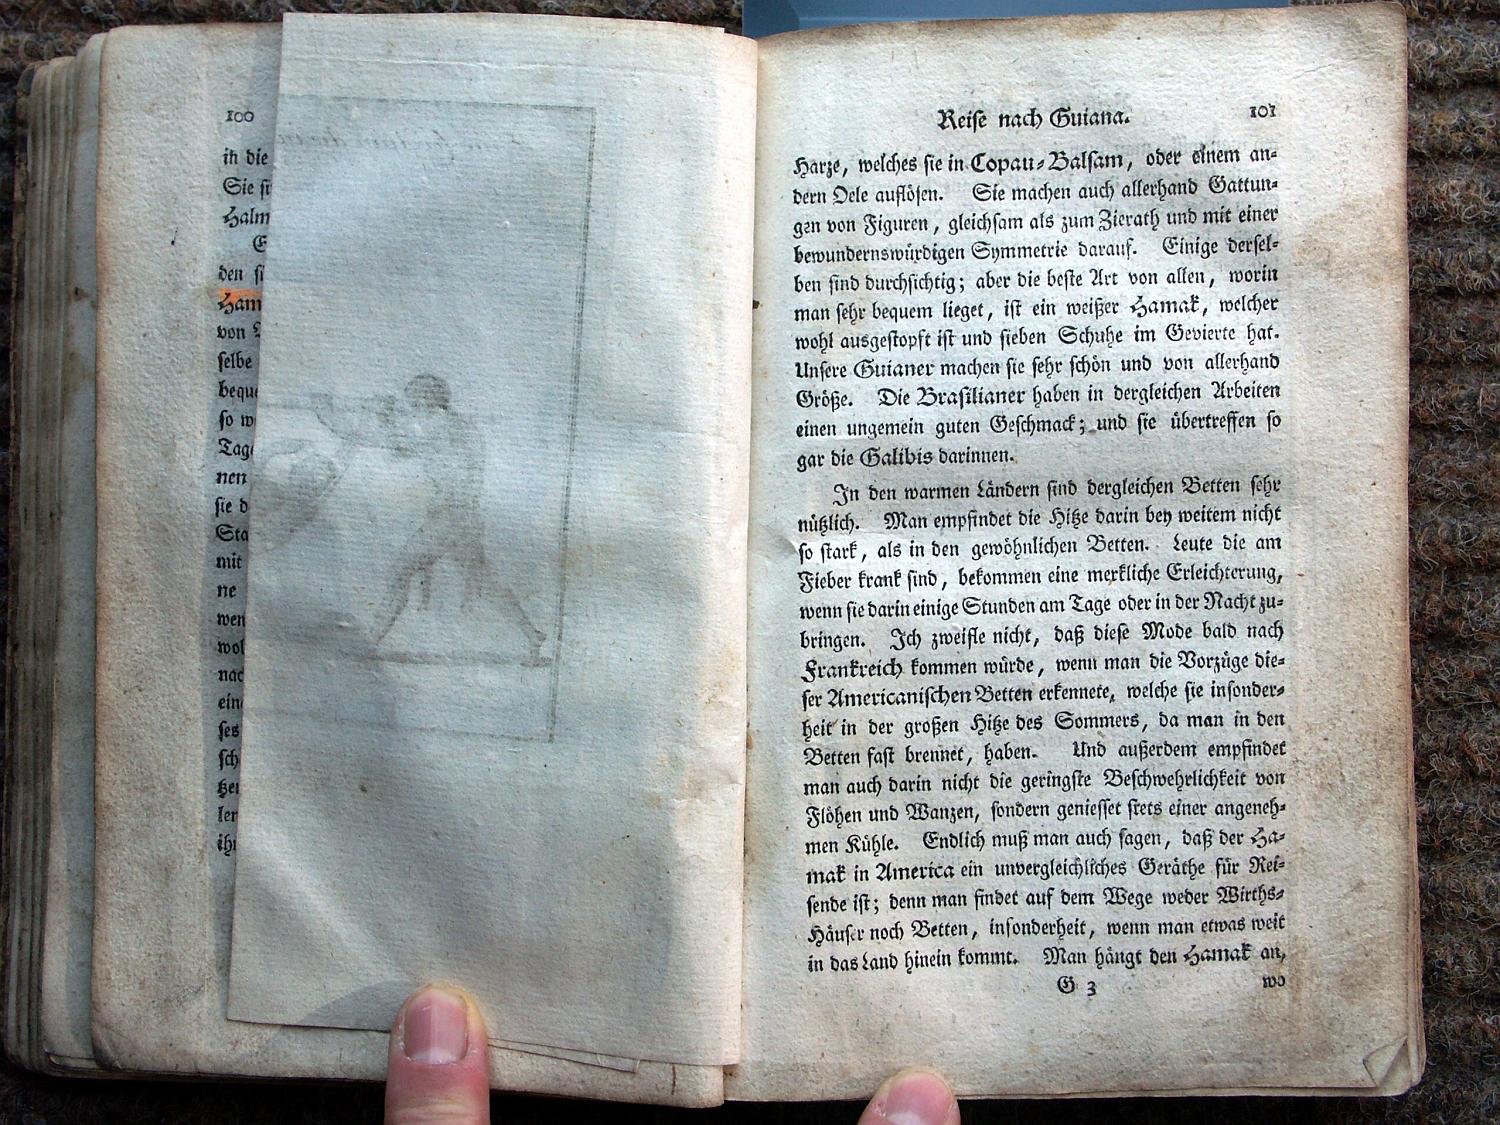 100
in die
Sie si
Halm
E
den si
Ham
von
selbe
bequ
so w
Tag
nen
sie d
Sta
mit
ne
wen
wol
nac
ein
ses
sch
tzen
ler
ihr
Reise nach Guiana. 101
Harze, welches sie in Copau-Balsam, oder einem an-
dern Oele auflösen. Sie machen auch allerhand Gattun-
gen von Figuren, gleichsam als zum Zierath und mit einer
bewundernswürdigen Symmetrie darauf. Einige dersel-
ben sind durchsichtig; aber die beste Art von allen, worin
man sehr bequem lieget, ist ein weißer Hamak, welcher
wohl ausgestopft ist und sieben Schuhe im Gevierte hat.
Unsere Guianer machen sie sehr schön und von allerhand
Größe. Die Brasilianer haben in dergleichen Arbeiten
einen ungemein guten Geschmack; und sie übertreffen so
gar die Galibis darinnen.
In den warmen Ländern sind dergleichen Betten sehr
nützlich. Man empfindet die Hitze darin bey weitem nicht
so stark, als in den gewöhnlichen Betten. Leute die am
Fieber krank sind, bekommen eine merkliche Erleichterung,
wenn sie darin einige Stunden am Tage oder in der Nacht zu-
bringen. Ich zweifle nicht, daß diese Mode bald nach
Frankreich kommen würde, wenn man die Vorzüge die-
ser Americanischen Betten erkennete, welche sie insonder-
heit in der großen Hitze des Sommers, da man in den
Betten fast brennet, haben. Und außerdem empfindet
man auch darin nicht die geringste Beschwehrlichkeit von
Flöhen und Wanzen, sondern geniesset stets einer angeneh-
men Kühle. Endlich muß man auch sagen, daß der Ha-
mak in America ein unvergleichliches Geräthe für Rei-
sende ist; denn man findet auf dem Wege weder Wirths-
Häuser noch Betten, insonderheit, wenn man etwas weit
in das Land hinein kommt. Man hängt den Hamak an,
G 3 wo